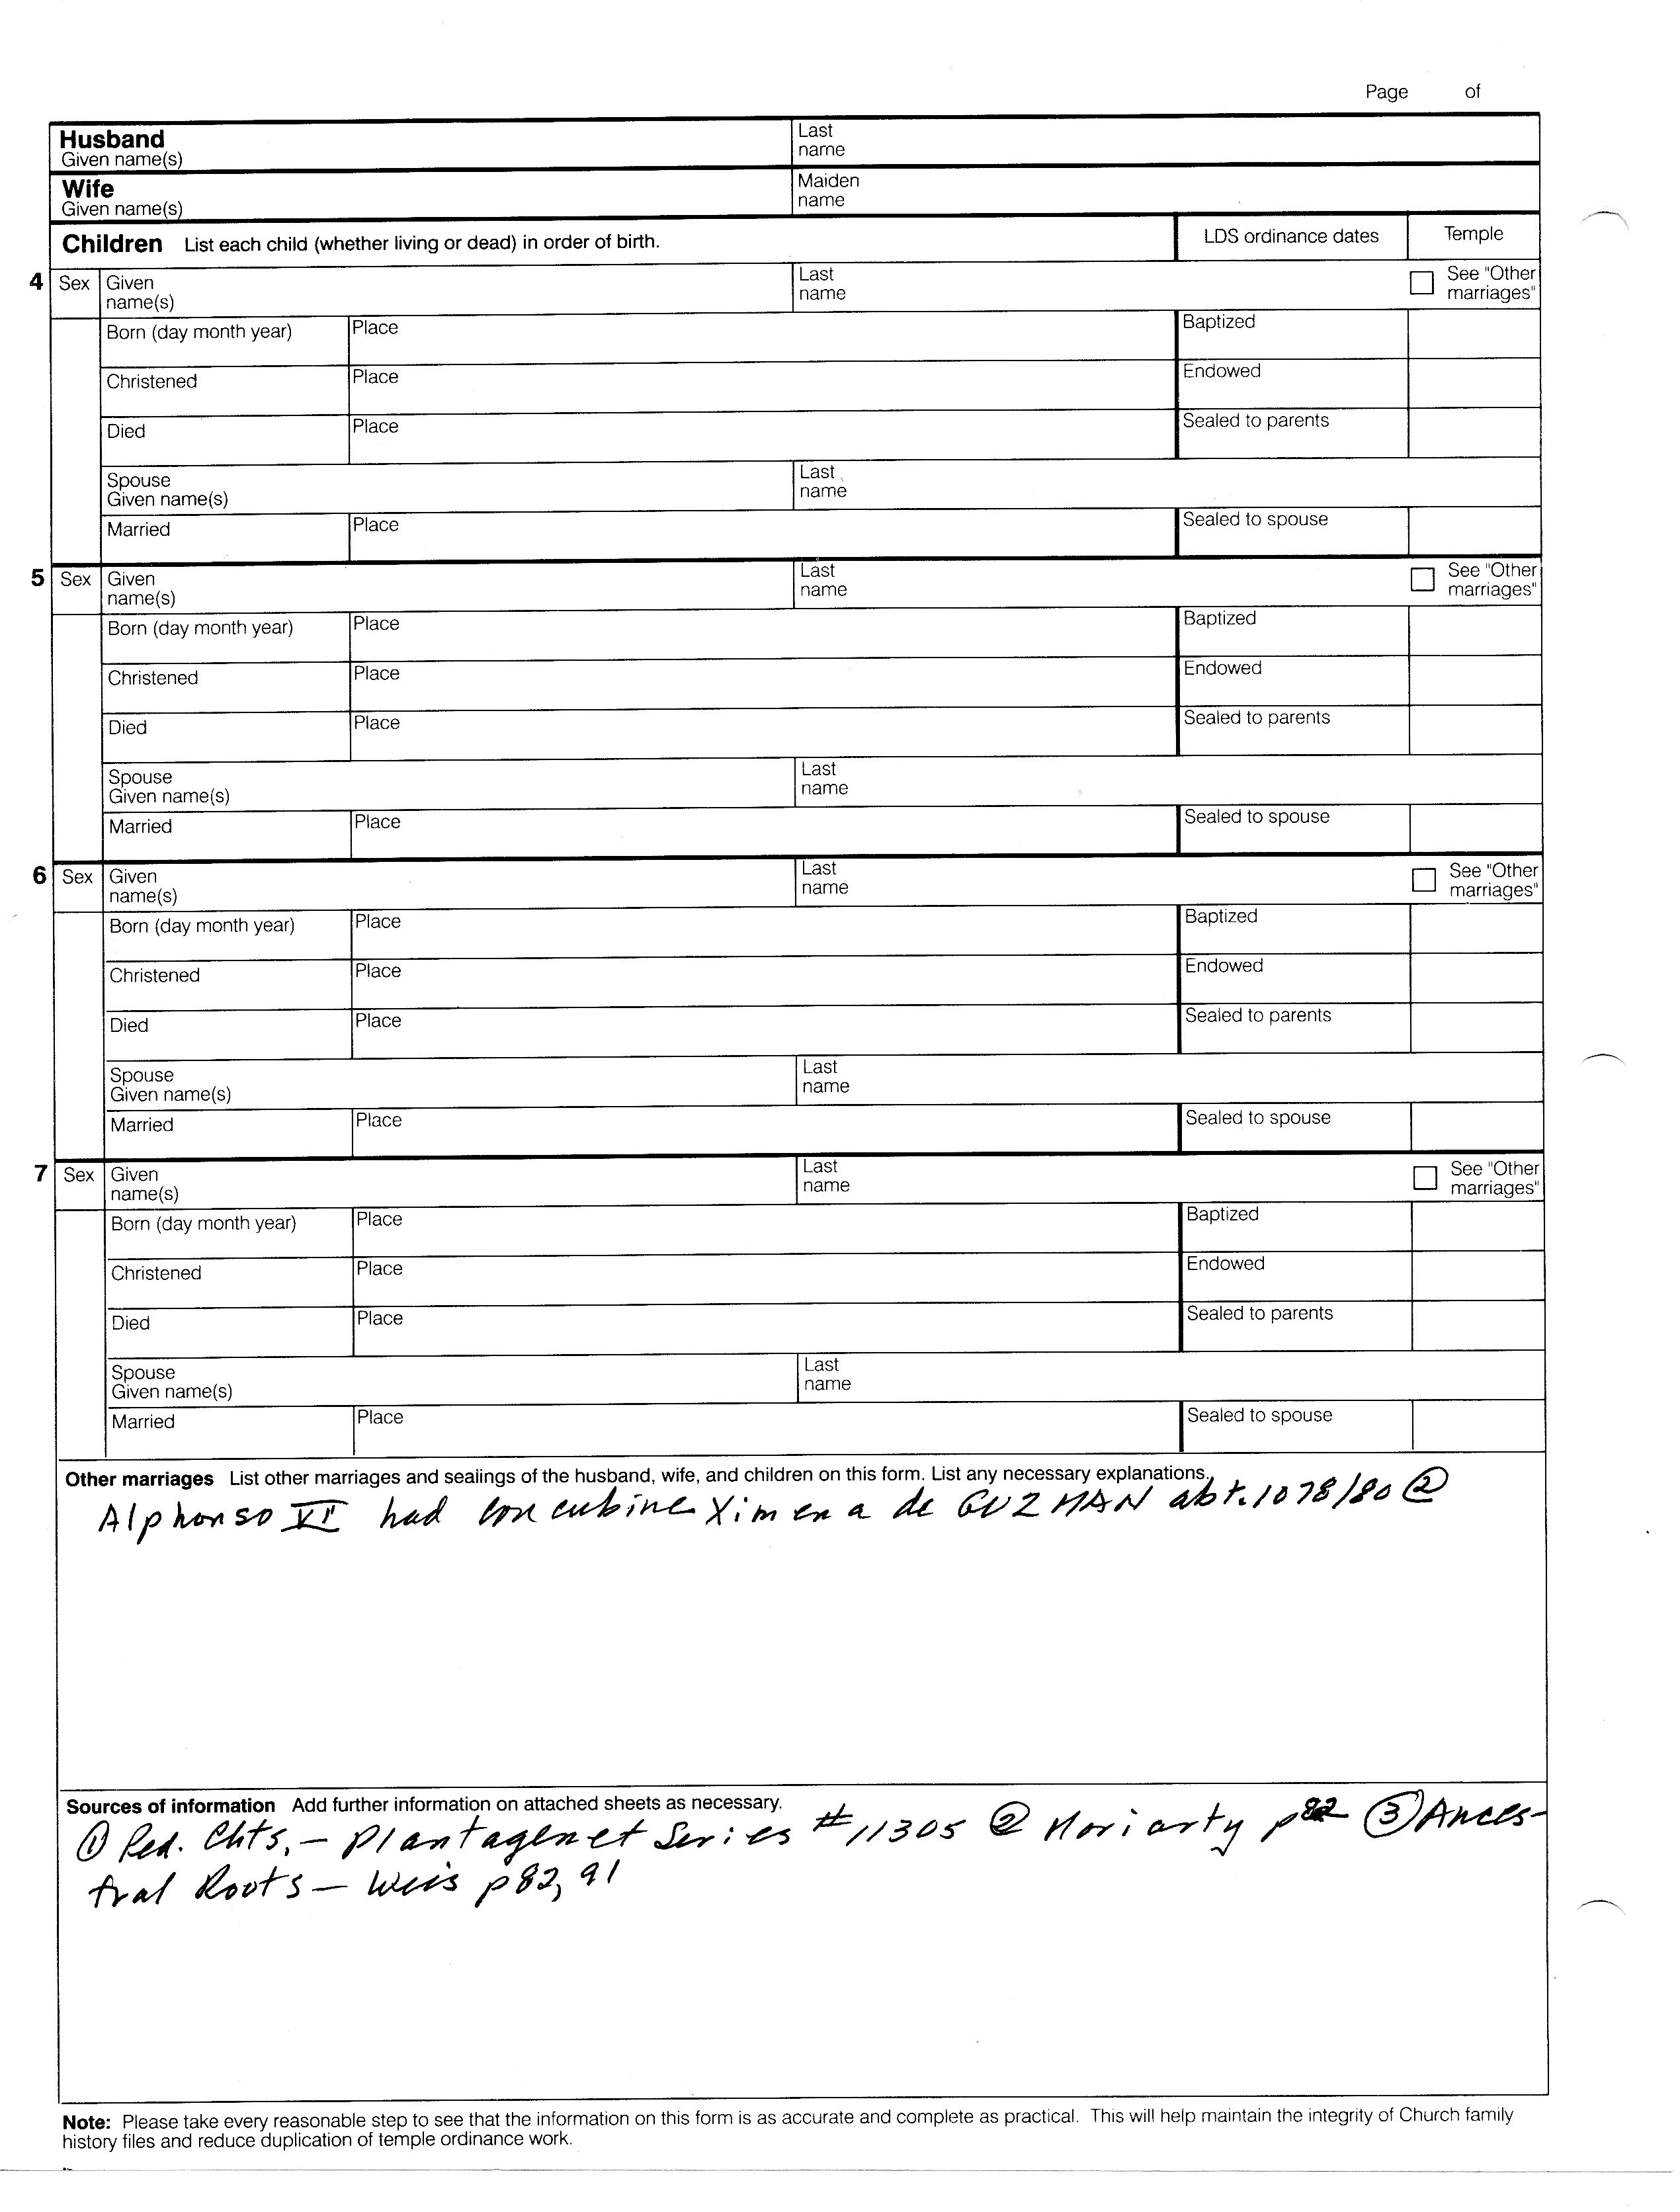 Page of
Husband
Given name(s)
Last
name
Wife
Given name(s)
Maiden
name
Children List each child (whether living or dead) in order of birth.
LDS ordinance dates
Temple
4 Sex Given
name(s)
Last
name
See "Other
marriages"
Born (day month year) Place Baptized
Christened Place Endowed
Died Place Sealed to parents
Spouse
Given name(s)
Last
name
Married Place Sealed to spouse
5 Sex Given
name(s)
Last
name
See "Other
marriages"
Born (day month year) Place Baptized
Christened Place Endowed
Died Place Sealed to parents
Spouse
Given name(s)
Last
name
Married Place Sealed to spouse
6 Sex Given
name(s)
Last
name
See "Other
marriages"
Born (day month year) Place Baptized
Christened Place Endowed
Died Place Sealed to parents
Spouse
Given name(s)
Last
name
Married Place Sealed to spouse
7 Sex Given
name(s)
Last
name
See "Other
marriages"
Born (day month year) Place Baptized
Christened Place Endowed
Died Place Sealed to parents
Spouse
Given name(s)
Last
name
Married Place Sealed to spouse
Other marriages List other marriages and sealings of the husband, wife, and children on this form. List any necessary explanations.
Alphonso VI had concubine Ximena de GUZMAN abt. 1078/80 ②
Sources of information Add further information on attached sheets as necessary.
① Ped. Chts. – Plantagenet Series #11305 ② Moriarty p82 ③ Ances-
tral Roots – Weis p82, 91
Note: Please take every reasonable step to see that the information on this form is as accurate and complete as practical. This will help maintain the integrity of Church family
history files and reduce duplication of temple ordinance work.